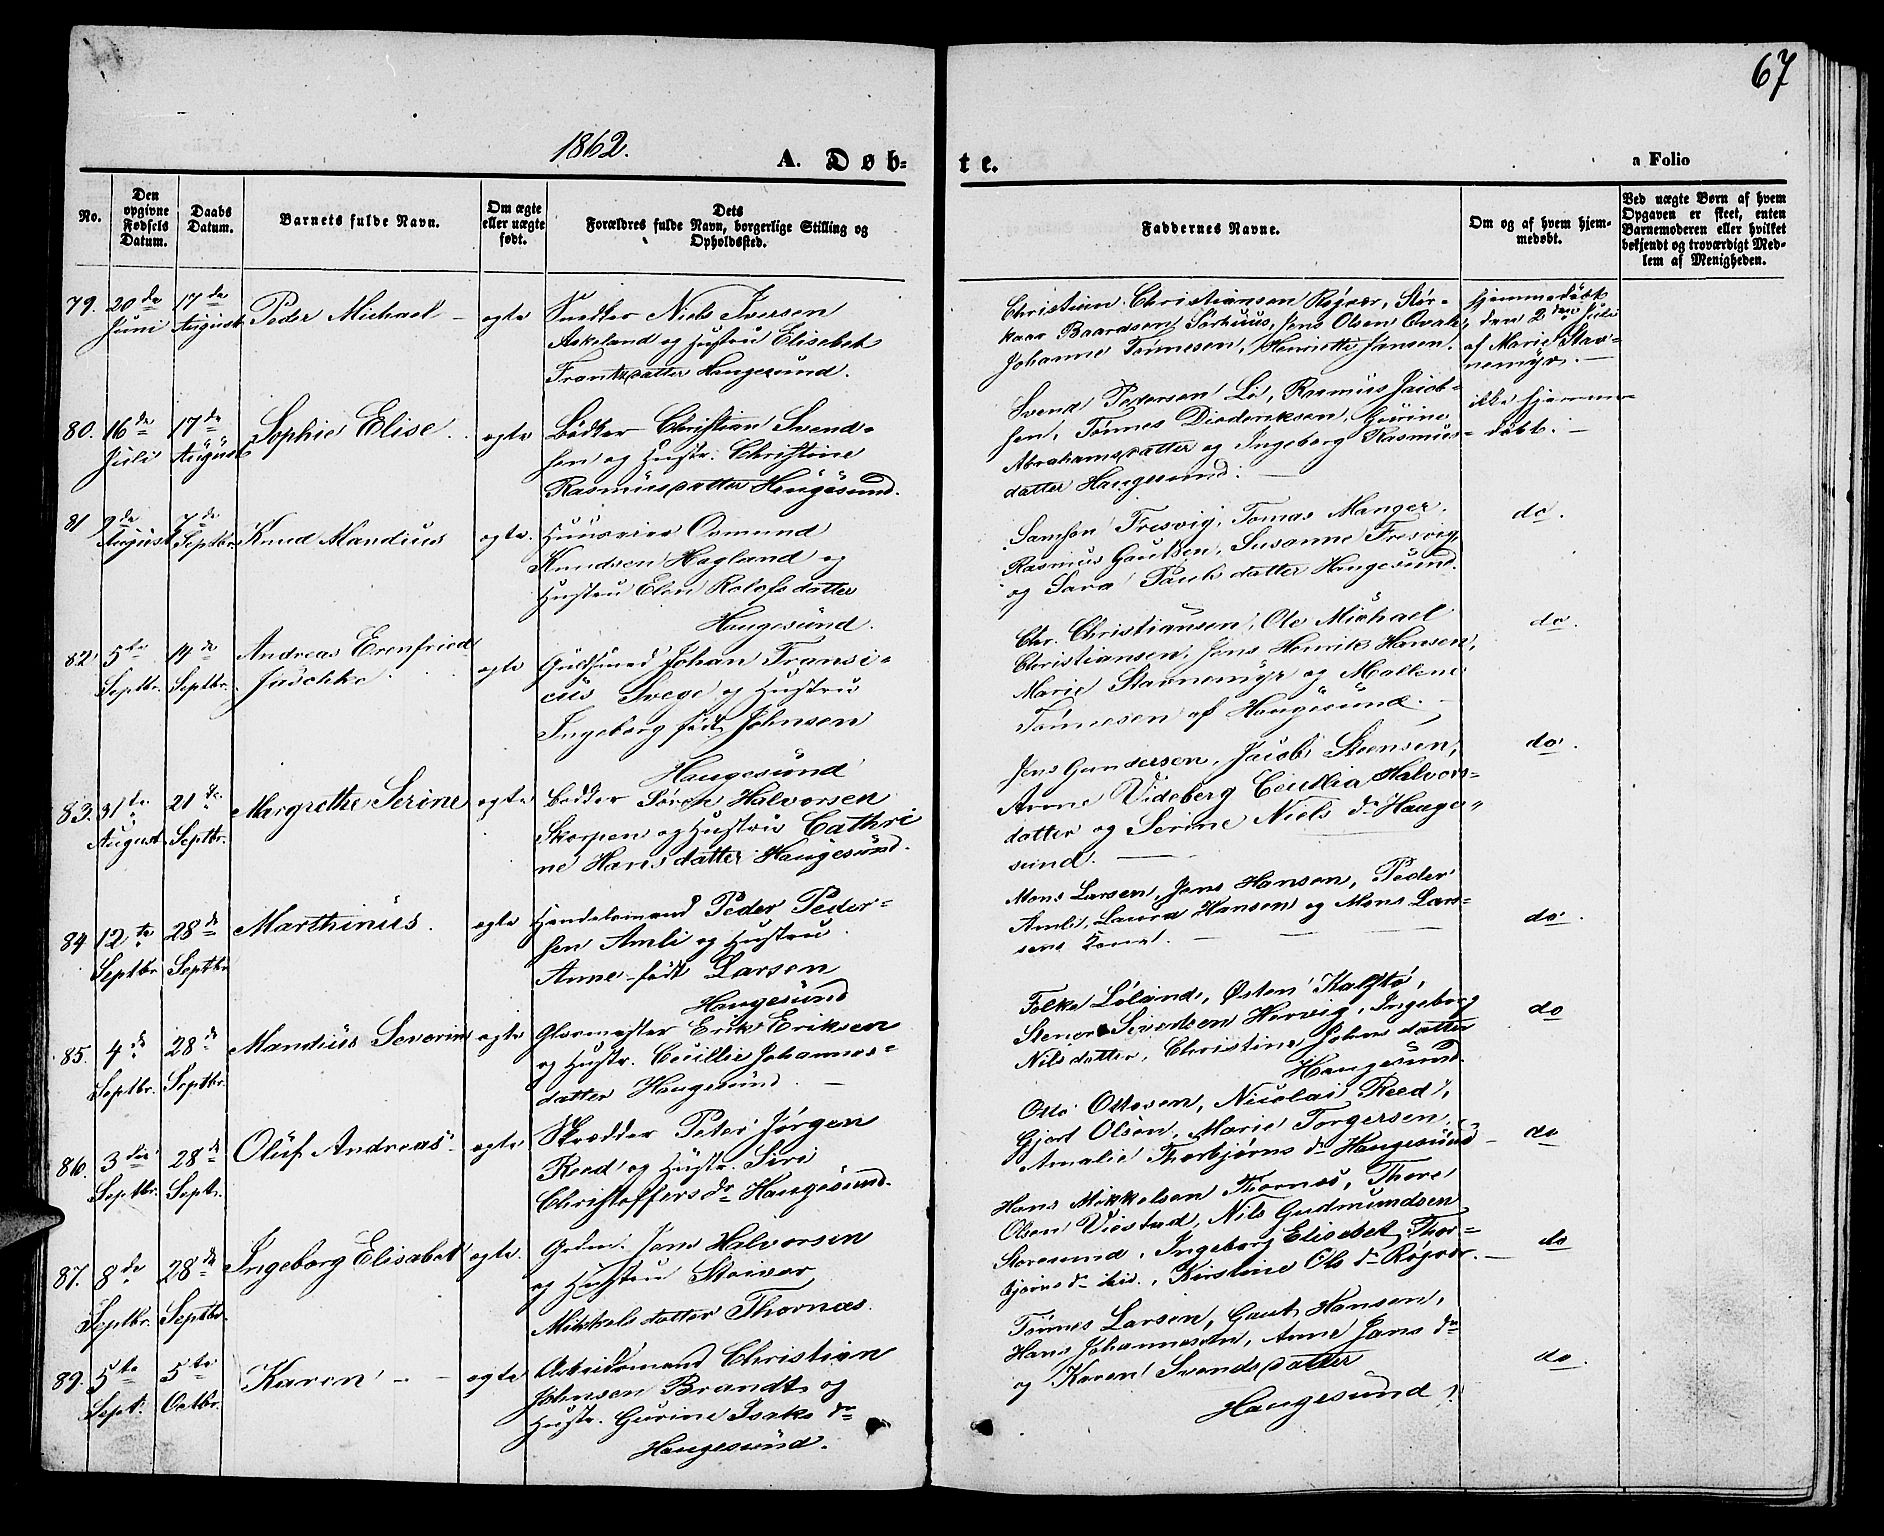 67
1862.
A. Døb-
te.
a Folio
No.
Den opgivne Fødsels Datum.
Daabs Datum.
Barnets fulde Navn.
Om ægte eller uægte født.
Dets Forældres fulde Navn, borgerlige Stilling og Opholdssted.
Faddernes Navne.
Om og af hvem hjemmedøbt.
Ved uægte Børn af hvem Opgaven er skeet, enten Barnemoderen eller hvilket bekjendt og troværdigt Medlem af Menigheden.
79. 20de Juni
17de August
Peder Michael
ægte
Snedker Niels Iversen
Askeland og Hustru Elisebet
Frantzdatter Haugesund.
Christian Christiansen Røgvær, Stør-
kaar Baardsen Sørhuus, Jens Olsen Qvale,
Johanne Tønnesen, Henriette Jansen.
Hjemmedøbt
den 2den Juli
af Marie Stav-
nemyr.
80. 16de Juli
17de August
Sophie Elise.
ægte
Bødker Christian Svend-
sen og Hustr. Christine
Rasmusdatter Haugesund.
Svend Pedersen Lø, Rasmus Jacob-
sen, Tønnes Diederiksen, Gurine
Abrahamsdatter og Ingeborg Rasmus-
datter Haugesund.
ikke hjemme-
døbt.
81 2de August
7de Septbr.
Knud Mandius
ægte.
Huusmand Osmund
Knudsen Hagland og
Hustru Elen Rolofsdatter
Haugesund.
Samson Tresvig, Tomas Manger.
Rasmus Gautsen, Susanne Tresvig,
og Sara Paulsdatter Haugesund.
do.
82 5te Septbr.
14de Septbr.
Andreas Erenfried
Jäschke.
ægte
Guldsmed Johan Fransi-
cus Svege og Hustru
Ingeborg født Johnsen
Haugesund
Chr. Christiansen, Ole Michael
Christiansen, Jens Henrik Hansen,
Marie Stavnemyr og Mallene
Tønnesen af Haugesund.
do.
83. 31te August
21de Septbr.
Margrethe Serine
ægte
Bødker Søren Halvorsen
Skorpen og Hustru Cathri
ne Hansdatter Haugesund.
Jens Gundersen, Jacob Steensen,
Anne Videberg Cecillia Halvors-
datter og Serine Niels dr Hauge-
sund.
do.
84 12te Septbr
28de Septbr
Marthinus.
ægte
Handelsmand Peder Peder-
sen Amli og Hustru
Anne født Larsen
Haugesund
Mons Larsen, Jens Hansen, Peder
Amli, Laura Hansen og Mons Lar-
sens Kone.
do.
85. 4de Septbr.
28de Septbr.
Mandius Severin
ægte
Glarmester Erik Eriksen
og Hustr. Cecillie Johannes-
datter Haugesund.
Folke Løland, Østen Kalstø,
Stener Sivertsen Hervig, Ingeborg
Nilsdatter, Christine Johnsdatter
Haugesund.
do
86. 3die Septbr.
28de Sept.
Oluf Andreas
ægte
Skrædder Peter Jørgen
Reed og Hustr. Siri
Christoffers dr Haugesund.
Otto Ottesen, Nicolai Reed,
Gjert Olsen, Marie Torgersen,
Amalie Thorbjørns dr Haugesund
do
87. 8de Septbr.
28de Septbr.
Ingeborg Elisabet
ægte.
Grdm. Jens Halvorsen
og Hustru Steivor
Mikkelsdatter Thornæs.
Hans Mikkelsen Thornæs, Thore
Olsen Viestad, Nils Gudmundsen
Storesund, Ingeborg Elisebet Thor-
bjørns dr ibid., Kirstine Ols dr Røgvær.
do
89. 5te Sept.
5te Octbr.
Karen
ægte
Arbeidsmand Christian
Johnsen Brandt og
Hustr. Gurine Isaks dr
Haugesund.
Tønnes Larsen, Gaut Hansen,
Hans Johannesen, Anne Jans dr
og Karen Svendsdatter
Haugesund.
do.